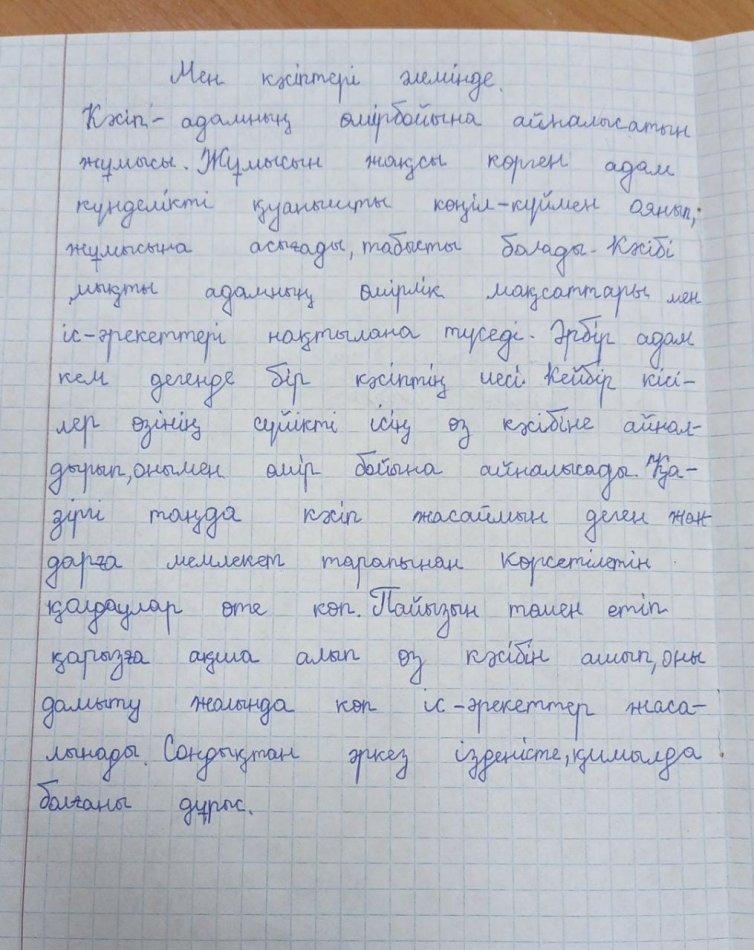 Мен кәсіптері әлемінде.
Кәсіп - адамның өмірбойына айналысатын
жұмысы. Жұмысын жақсы көрген адам
күнделікті қуанышты көңіл-күймен оянып,
жұмысына асығады, табысты болады. Кәсібі
мықты адамның өмірлік мақсаттары мен
іс-әрекеттері нақтылана түседі. Әрбір адам
кем дегенде бір кәсіптің иесі. Кейбір кісі-
лер өзінің сүйікті ісің өз кәсібіне айнал-
дырып, онымен өмір бойына айналысады. Қа-
зіргі таңда кәсіп жасаймын деген жан
дарға мемлекет тарапынан көрсетілетін
қолдаулар өте көп. Пайызын төмен етіп
қарызға ақша алып өз кәсібін ашып, оны
дамыту жолында көп іс-әрекеттер жаса-
лынады. Сондықтан әркез ізденісте, қимылда
болғаны дұрыс.